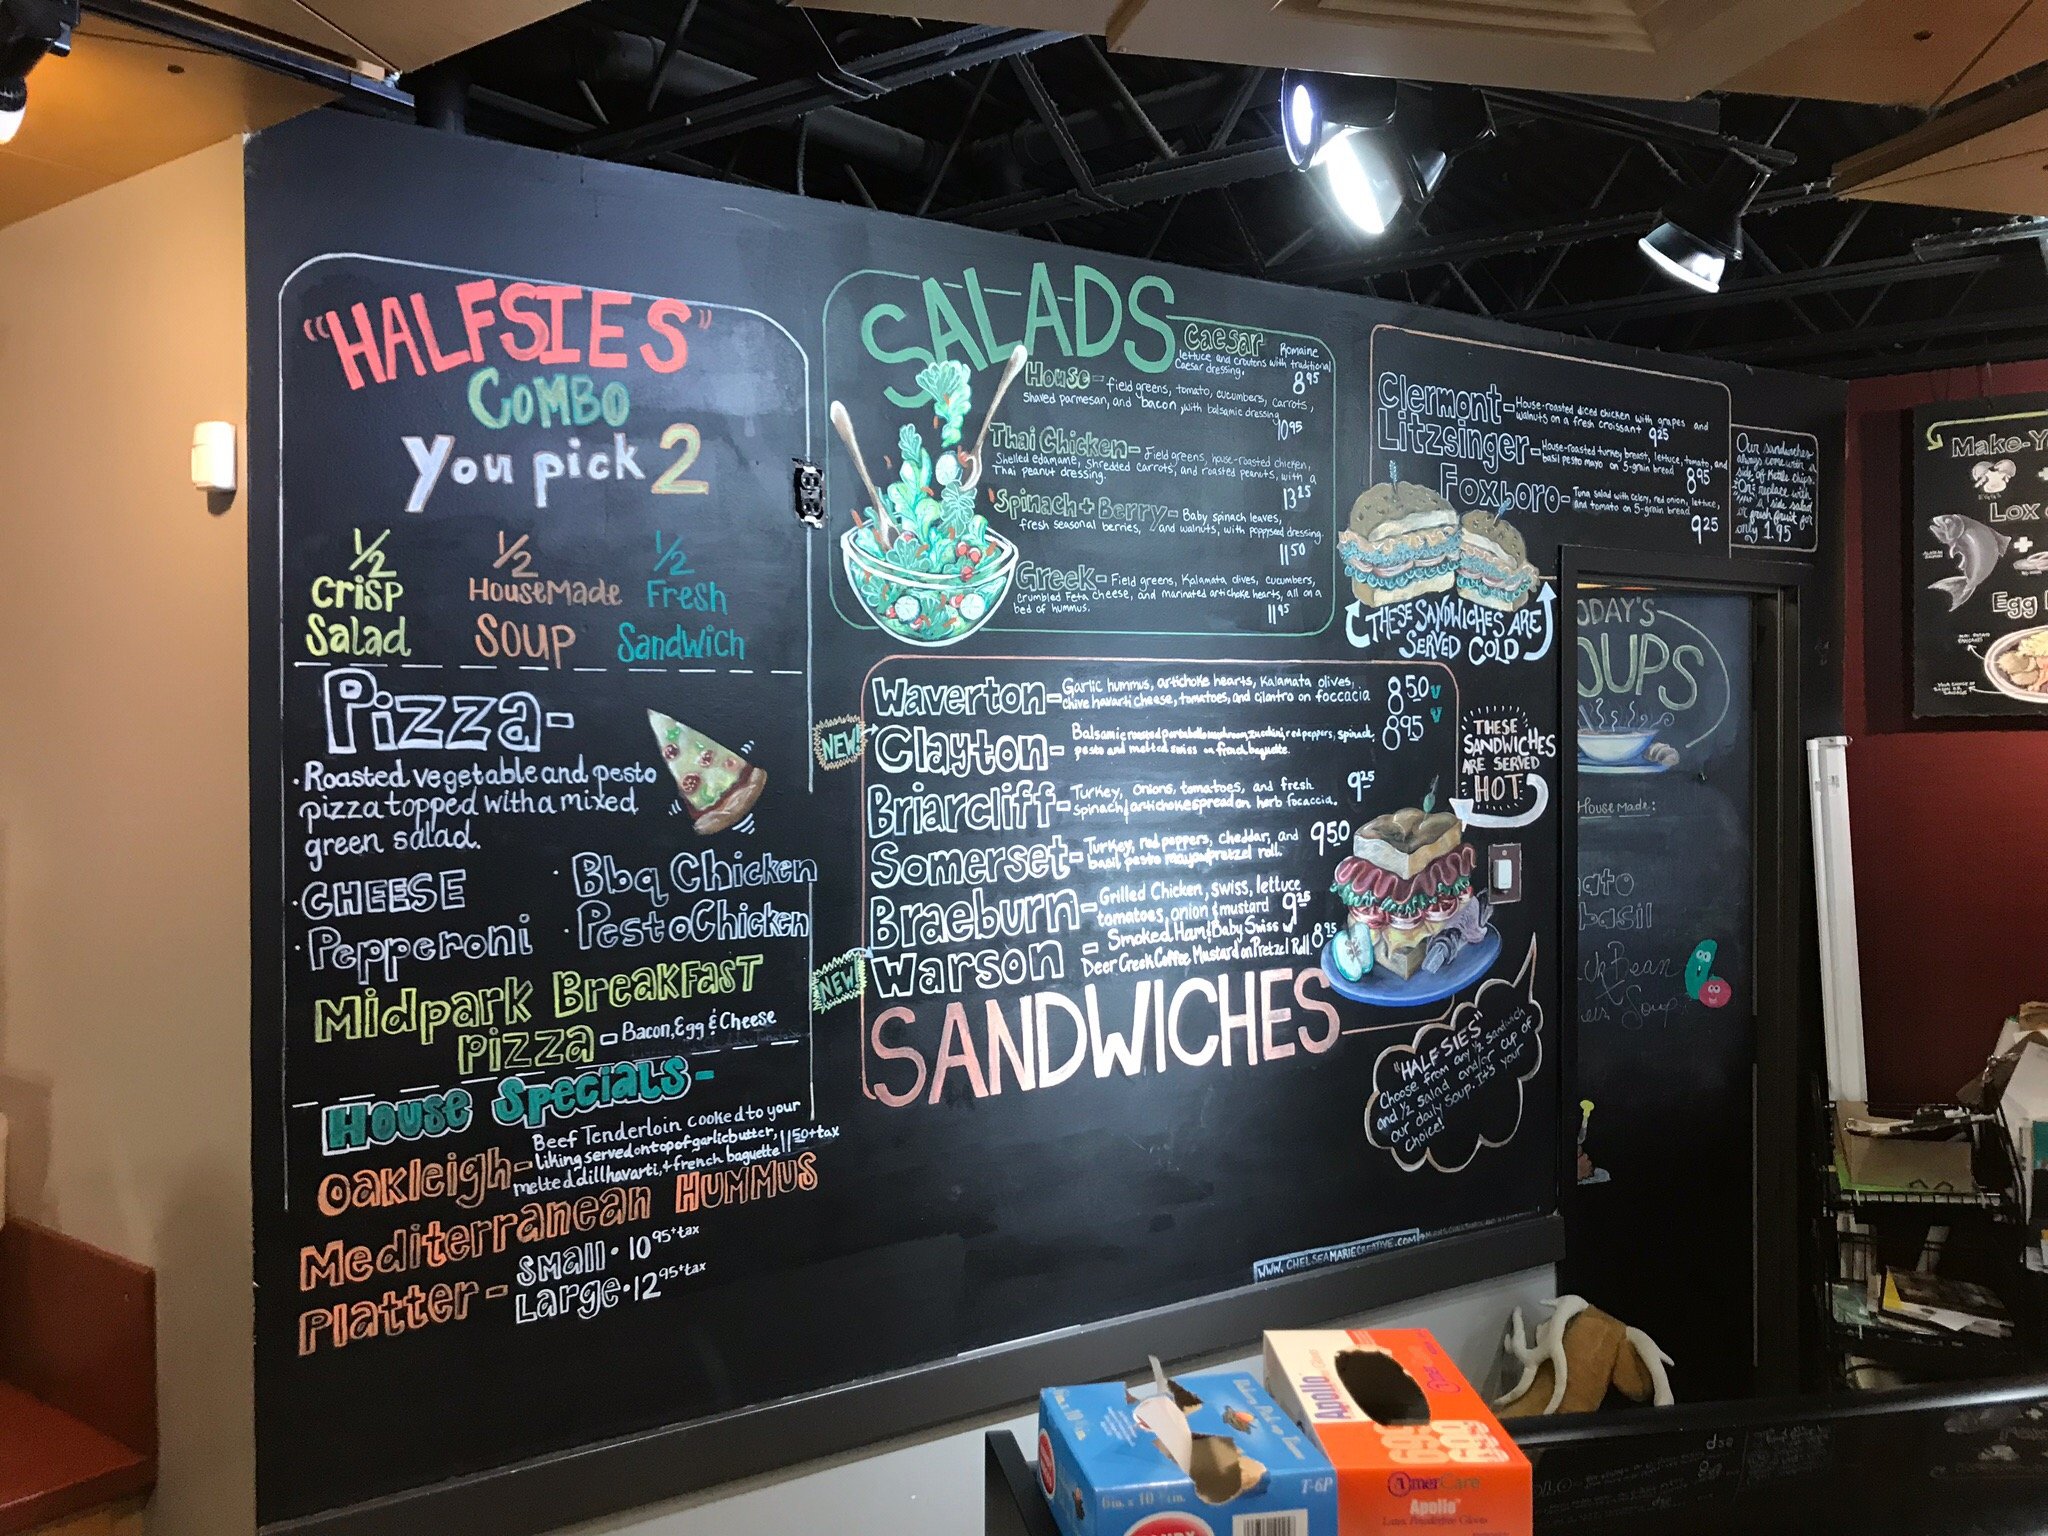 "HALFSIES"
COMBO
You pick 2
1/2
Crisp
Salad
1/2
HouseMade
Soup
1/2
Fresh
Sandwich
Pizza-
· Roasted vegetable and pesto
pizza topped with a mixed
green salad.
· CHEESE
· Pepperoni
· Bbq Chicken
· Pesto Chicken
Midpark Breakfast
Pizza - Bacon, Egg & Cheese
House Specials-
Oakleigh- Beef Tenderloin cooked to your
liking served on top of garlic butter,
melted dill havarti, + french baguette 11 50 + tax
Mediterranean Hummus
Platter - Small · 10 95 + tax
Large · 12 95 + tax
SALADS
Caesar Romaine
lettuce and croutons with traditional
Caesar dressing. 8 95
House- Field greens, tomato, cucumbers, carrots,
Shaved parmesan, and bacon, with balsamic dressing
10 95
Thai Chicken- Field greens, house-roasted chicken,
Shelled edamame, shredded carrots, and roasted peanuts, with a
Thai peanut dressing. 13 25
Spinach + Berry- Baby spinach leaves,
fresh seasonal berries, and walnuts, with poppyseed dressing.
11 50
Greek- Field greens, Kalamata olives, cucumbers,
Crumbled Feta cheese, and marinated artichoke hearts, all on a
bed of hummus. 11 95
Clermont- House-roasted diced chicken with grapes and
walnuts on a fresh croissant 9 25
Litzsinger- House-roasted turkey breast, lettuce, tomato, and
basil pesto mayo on 5-grain bread 8 95
Foxboro- Tuna salad with celery, red onion, lettuce,
and tomato on 5-grain bread
9 25
THESE SANDWICHES ARE
SERVED COLD
Our sandwiches
always come with a
side of Kettle chips.
Or replace with
a side salad
or fresh fruit for
only 1.95
Waverton- Garlic hummus, artichoke hearts, Kalamata olives,
chive havarti cheese, tomatoes, and cilantro on foccacia 8 50 V
NEW!
Clayton- Balsamic roasted portabello mushroom, zucchini, red peppers, spinach,
pesto and melted swiss on french baguette. 8 95 V
Briarcliff- Turkey, onions, tomatoes, and fresh
spinach & artichoke spread on herb focaccia. 9 25
Somerset- Turkey, red peppers, cheddar, and
basil pesto mayo on pretzel roll. 9 50
Braeburn- Grilled Chicken, swiss, lettuce
tomatoes, onion & mustard 9 25
NEW!
Warson - Smoked Ham & Baby Swiss w/
Deer Creek Coffee Mustard on Pretzel Roll 8 95
SANDWICHES
THESE
SANDWICHES
ARE SERVED
HOT
"HALFSIES"
Choose from any 1/2 Sandwich
and 1/2 salad and/or cup of
our daily soup. It's your
choice!
WWW.CHELSEAMARIECREATIVE.COM
ODAY'S
OUPS
House Made:
ato
basil
Bean
Soup
Make-Y
LOX
+
Egg
Apollo
AmerCare
Apollo
Latex Powderfree Gloves
T-6P
6in. x 10 3/4 in.